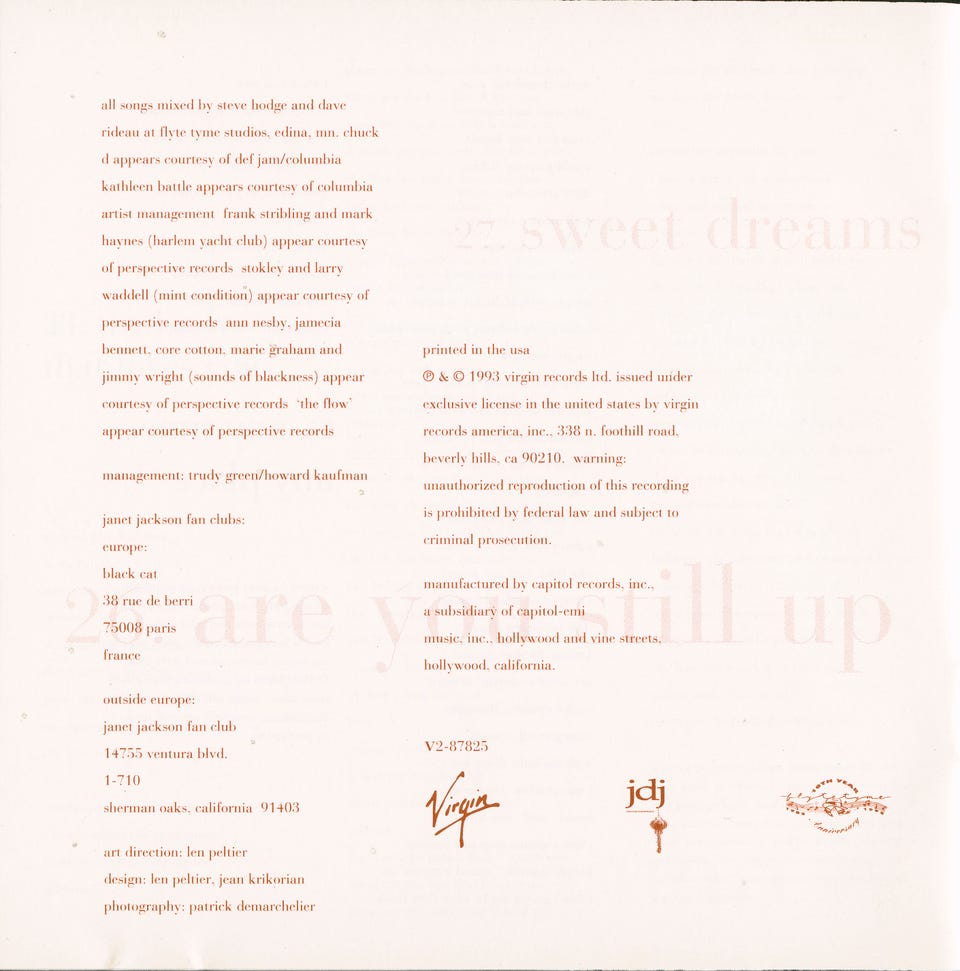 all songs mixed by steve hodge and dave
rideau at flyte tyme studios, edina, mn. chuck
d appears courtesy of def jam/columbia
kathleen battle appears courtesy of columbia
artist management  frank stribling and mark
haynes (harlem yacht club) appear courtesy
of perspective records  stokley and larry
waddell (mint condition) appear courtesy of
perspective records  ann nesby, jamecia
bennett, core cotton, marie graham and
jimmy wright (sounds of blackness) appear
courtesy of perspective records  'the flow'
appear courtesy of perspective records
management: trudy green/howard kaufman
janet jackson fan clubs:
europe:
black cat
38 rue de berri
75008 paris
france
outside europe:
janet jackson fan club
14755 ventura blvd.
1-710
sherman oaks, california  91403
art direction: len peltier
design: len peltier, jean krikorian
photography: patrick demarchelier
27. sweet dreams
printed in the usa
℗ & © 1993 virgin records ltd. issued under
exclusive license in the united states by virgin
records america, inc., 338 n. foothill road,
beverly hills, ca 90210.  warning:
unauthorized reproduction of this recording
is prohibited by federal law and subject to
criminal prosecution.
26. are you still up
manufactured by capitol records, inc.,
a subsidiary of capitol-emi
music, inc., hollywood and vine streets,
hollywood, california.
V2-87825
Virgin
jdj
10TH YEAR
flyte tyme
anniversary